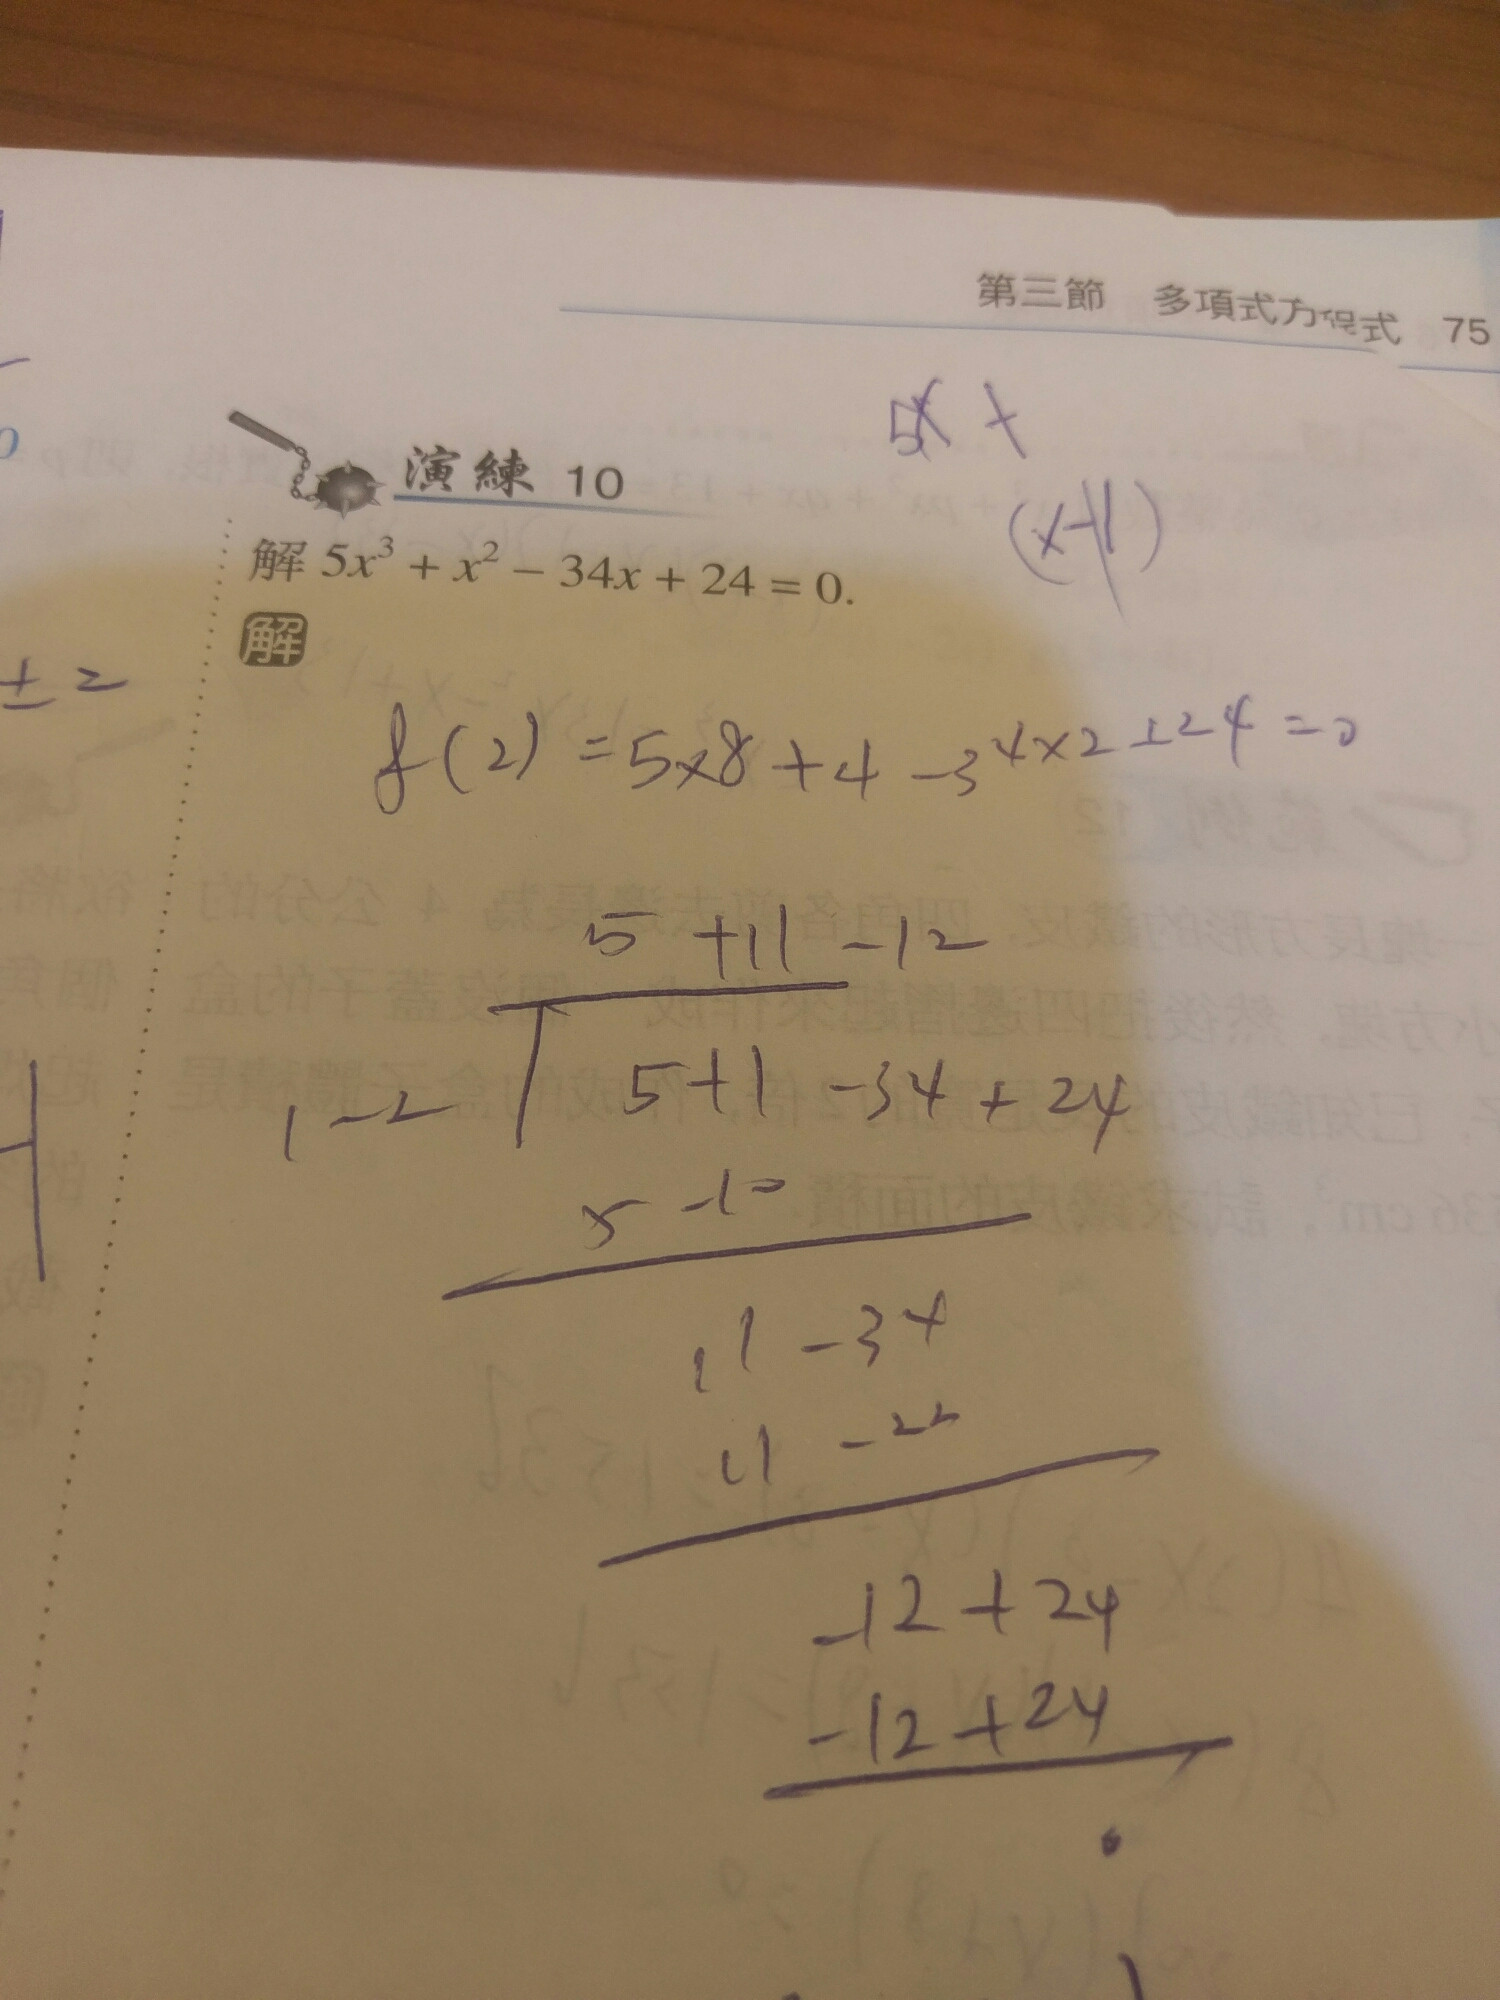 第三節 多項式方程式 75
5x +
(x-1)
演練 10
解 5x³ + x² − 34x + 24 = 0.
解
±2
f(2) = 5×8 + 4 − 34×2 + 24 = 0
5 +11 −12
1 −2 5+1 −34 + 24
5 −10
11 −34
11 −22
−12 + 24
−12 + 24